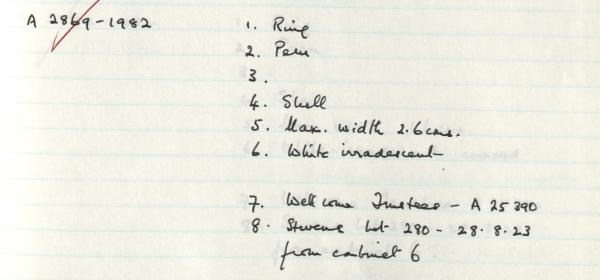 A 2869-1982
1. Ring
2. Peru
3.
4. Shell
5. Max. width 2.6cms.
6. White irradescent
7. Wellcome Trustees - A 25390
8. Stevens Lot 280 - 28.8.23
from cabinet 6